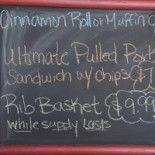 Cinnamon Roll or Muffin
Ultimate Pulled Pork
Sandwich w/ chips
Rib Basket $9.99
while supply lasts